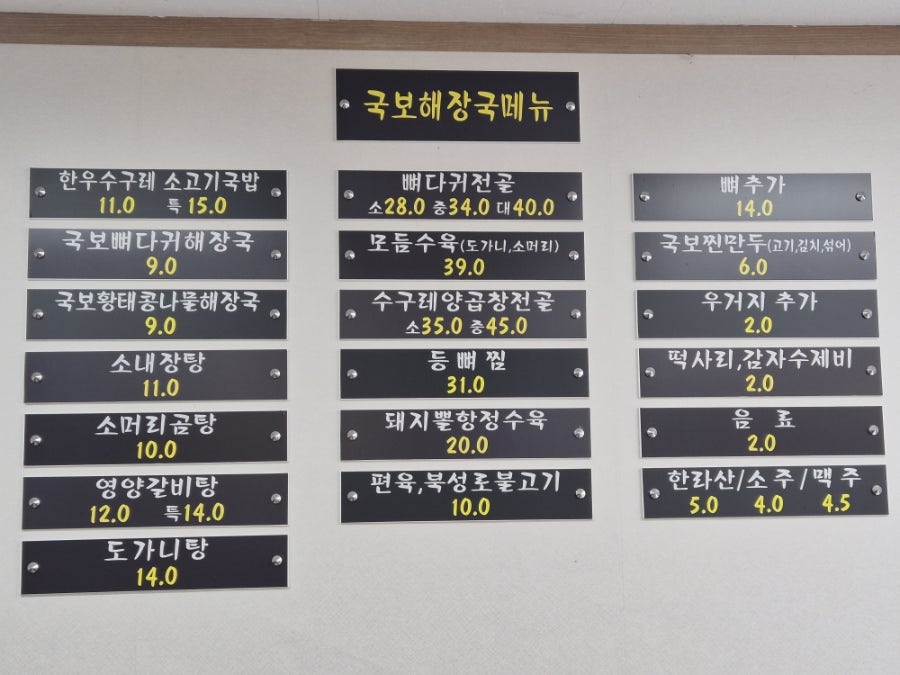 국보해장국메뉴
한우수구레 소고기국밥
11.0 특 15.0
국보뼈다귀해장국
9.0
국보황태콩나물해장국
9.0
소내장탕
11.0
소머리곰탕
10.0
영양갈비탕
12.0 특14.0
도가니탕
14.0
뼈다귀전골
소28.0 중34.0 대40.0
모듬수육(도가니,소머리)
39.0
수구레양곱창전골
소35.0 중45.0
등뼈찜
31.0
돼지뽈항정수육
20.0
편육,북성로불고기
10.0
뼈추가
14.0
국보찐만두(고기,김치,섞어)
6.0
우거지 추가
2.0
떡사리,감자수제비
2.0
음 료
2.0
한라산/소주/맥주
5.0 4.0 4.5